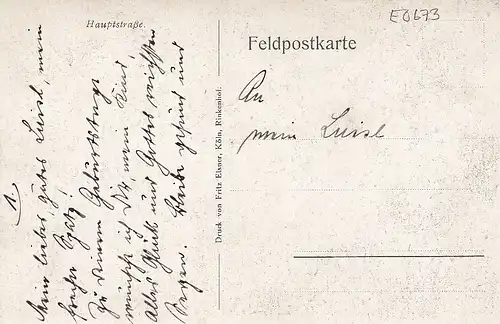 E0673
Hauptstraße.
Feldpostkarte
An
mein Luisl
Druck von Fritz Elsner, Köln, Rinkenhof.
1.
Mein liebes, gutes Luisl, mein
freches Spatz!
Zu deinem Geburtstage
wünsche ich Dir mein Kind,
alles Glück und Gottes reichsten
Segen. Bleibe gesund und